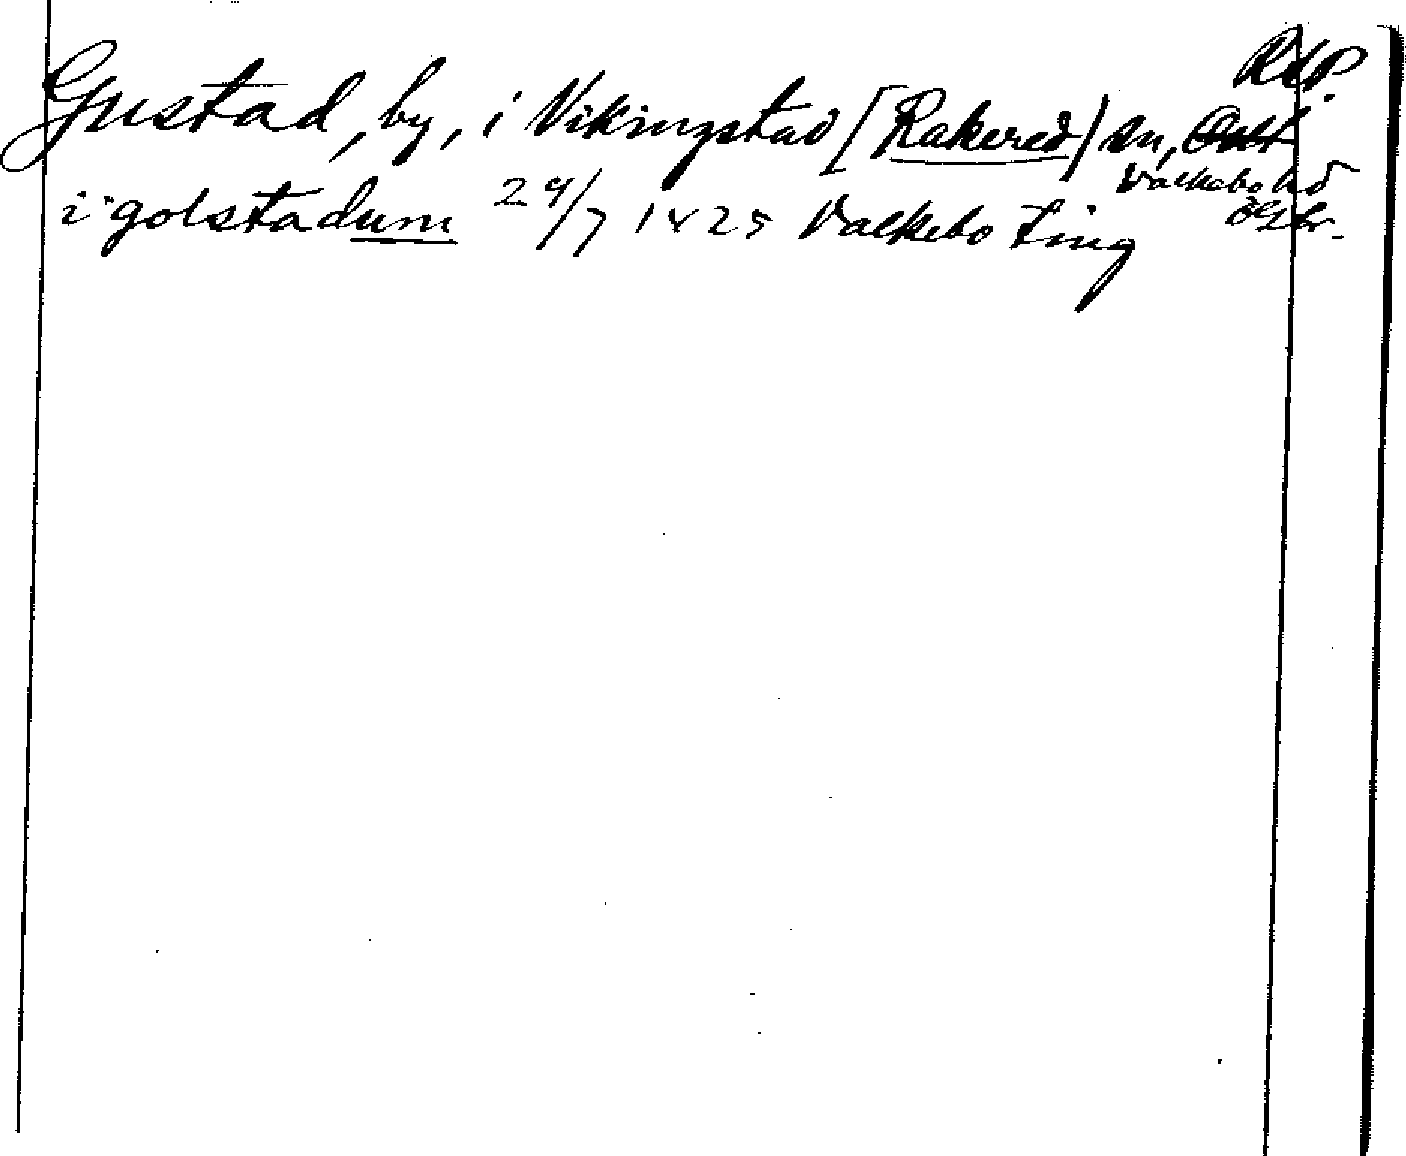 RAP.
Gustad, by, i Vikingstad [Rakered) sn,
Valkebo hd
Ögtbr.
i golstadum 29/7 1425 Valkebo ting